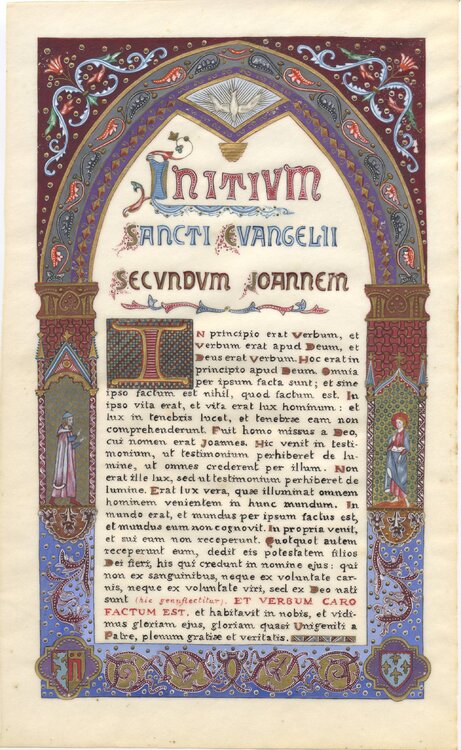 INITIVM
SANCTI EVANGELII
SECVNDVM JOANNEM
IN principio erat Verbum, et
Verbum erat apud Deum, et
Deus erat Verbum. Hoc erat in
principio apud Deum. Omnia
per ipsum facta sunt; et sine
ipso factum est nihil, quod factum est. In
ipso vita erat, et vita erat lux hominum: et
lux in tenebris lucet, et tenebræ eam non
comprehenderunt. Fuit homo missus a Deo,
cui nomen erat Joannes. Hic venit in testi-
monium, ut testimonium perhiberet de lu-
mine, ut omnes crederent per illum. Non
erat ille lux, sed ut testimonium perhiberet de
lumine. Erat lux vera, quæ illuminat omnem
hominem venientem in hunc mundum. In
mundo erat, et mundus per ipsum factus est,
et mundus eum non cognovit. In propria venit,
et sui eum non receperunt. Quotquot autem
receperunt eum, dedit eis potestatem filios
Dei fieri, his qui credunt in nomine ejus: qui
non ex sanguinibus, neque ex voluntate car-
nis, neque ex voluntate viri, sed ex Deo nati
sunt (hic genuflectitur). ET VERBUM CARO
FACTUM EST. et habitavit in nobis, et vidi-
mus gloriam ejus, gloriam quasi Unigeniti a
Patre, plenum gratiæ et veritatis.